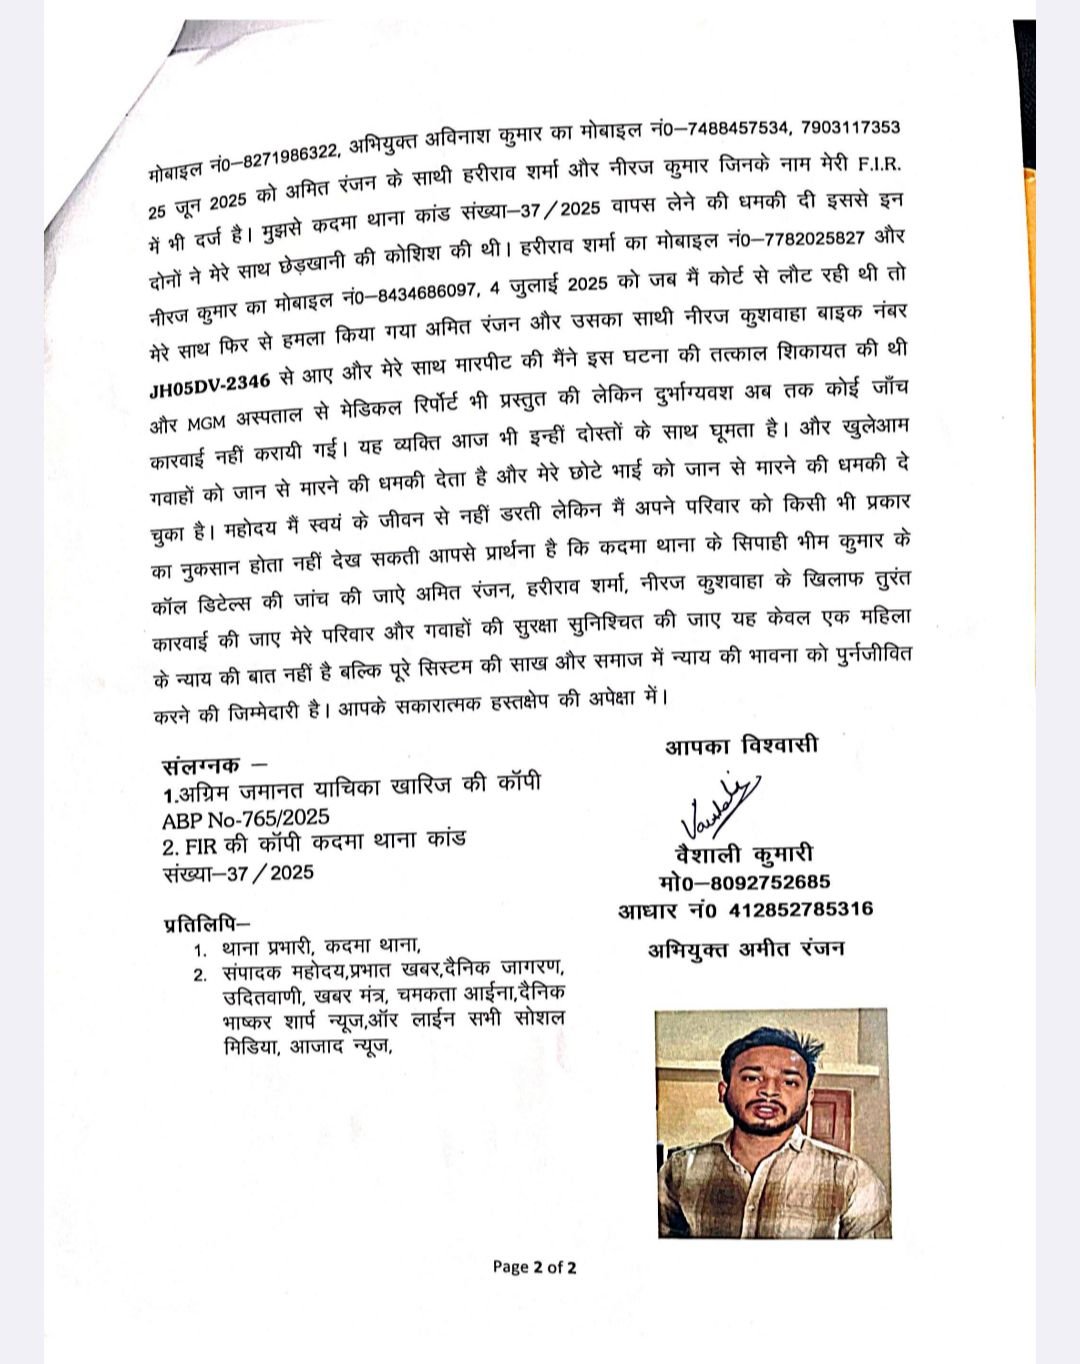 मोबाइल नं0–8271986322, अभियुक्त अविनाश कुमार का मोबाइल नं0–7488457534, 7903117353
25 जून 2025 को अमित रंजन के साथी हरीराव शर्मा और नीरज कुमार जिनके नाम मेरी F.I.R.
में भी दर्ज है। मुझसे कदमा थाना कांड संख्या–37/2025 वापस लेने की धमकी दी इससे इन
दोनों ने मेरे साथ छेड़खानी की कोशिश की थी। हरीराव शर्मा का मोबाइल नं0–7782025827 और
नीरज कुमार का मोबाइल नं0–8434686097, 4 जुलाई 2025 को जब मैं कोर्ट से लौट रही थी तो
मेरे साथ फिर से हमला किया गया अमित रंजन और उसका साथी नीरज कुशवाहा बाइक नंबर
JH05DV-2346 से आए और मेरे साथ मारपीट की मैंने इस घटना की तत्काल शिकायत की थी
और MGM अस्पताल से मेडिकल रिर्पोर्ट भी प्रस्तुत की लेकिन दुर्भाग्यवश अब तक कोई जाँच
कारवाई नहीं करायी गई। यह व्यक्ति आज भी इन्हीं दोस्तों के साथ घूमता है। और खुलेआम
गवाहों को जान से मारने की धमकी देता है और मेरे छोटे भाई को जान से मारने की धमकी दे
चुका है। महोदय मैं स्वयं के जीवन से नहीं डरती लेकिन मैं अपने परिवार को किसी भी प्रकार
का नुकसान होता नहीं देख सकती आपसे प्रार्थना है कि कदमा थाना के सिपाही भीम कुमार के
कॉल डिटेल्स की जांच की जाऐ अमित रंजन, हरीराव शर्मा, नीरज कुशवाहा के खिलाफ तुरंत
कारवाई की जाए मेरे परिवार और गवाहों की सुरक्षा सुनिश्चित की जाए यह केवल एक महिला
के न्याय की बात नहीं है बल्कि पूरे सिस्टम की साख और समाज में न्याय की भावना को पुर्नजीवित
करने की जिम्मेदारी है। आपके सकारात्मक हस्तक्षेप की अपेक्षा में।
संलग्नक –
1.अग्रिम जमानत याचिका खारिज की कॉपी
ABP No-765/2025
2. FIR की कॉपी कदमा थाना कांड
संख्या–37/2025
आपका विश्वासी
Vaishali
वैशाली कुमारी
मो0–8092752685
आधार नं0 412852785316
अभियुक्त अमीत रंजन
प्रतिलिपि–
1. थाना प्रभारी, कदमा थाना,
2. संपादक महोदय,प्रभात खबर,दैनिक जागरण,
उदितवाणी, खबर मंत्र, चमकता आईना,दैनिक
भाष्कर शार्प न्यूज,ऑर लाईन सभी सोशल
मिडिया, आजाद न्यूज,
Page 2 of 2